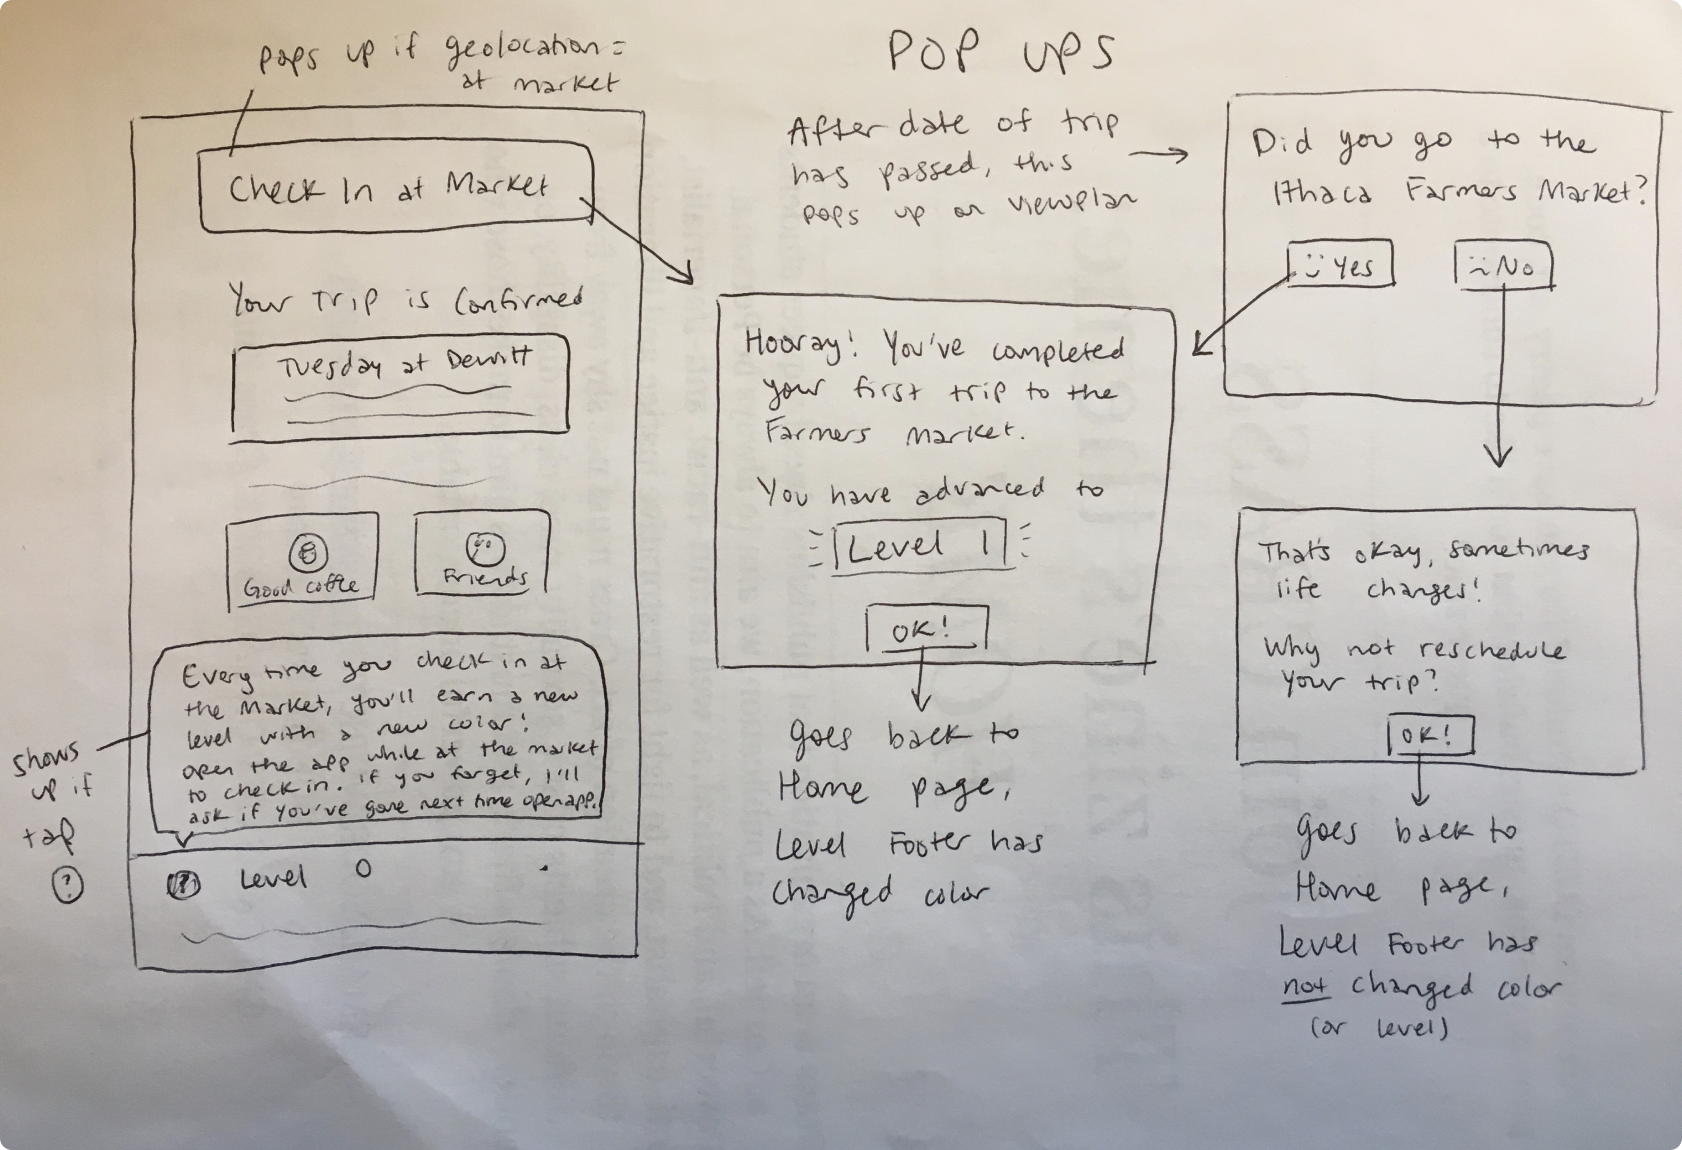 pops up if geolocation =
at market
Check In at Market
Your Trip is Confirmed
Tuesday at Dewitt
Good coffee
Friends
Every time you check in at
the Market, you'll earn a new
level with a new color!
open the app while at the market
to check in. if you forget, I'll
ask if you've gone next time open app.
shows
up if
tap
?
? Level 0
POP UPS
After date of trip
has passed, this
pops up on viewplan
Hooray! You've completed
your first trip to the
Farmers Market.
You have advanced to
Level 1
OK!
goes back to
Home page,
Level Footer has
changed color
Did you go to the
Ithaca Farmers Market?
Yes
No
That's okay, sometimes
life changes!
Why not reschedule
your trip?
OK!
goes back to
Home page,
Level Footer has
not changed color
(or level)